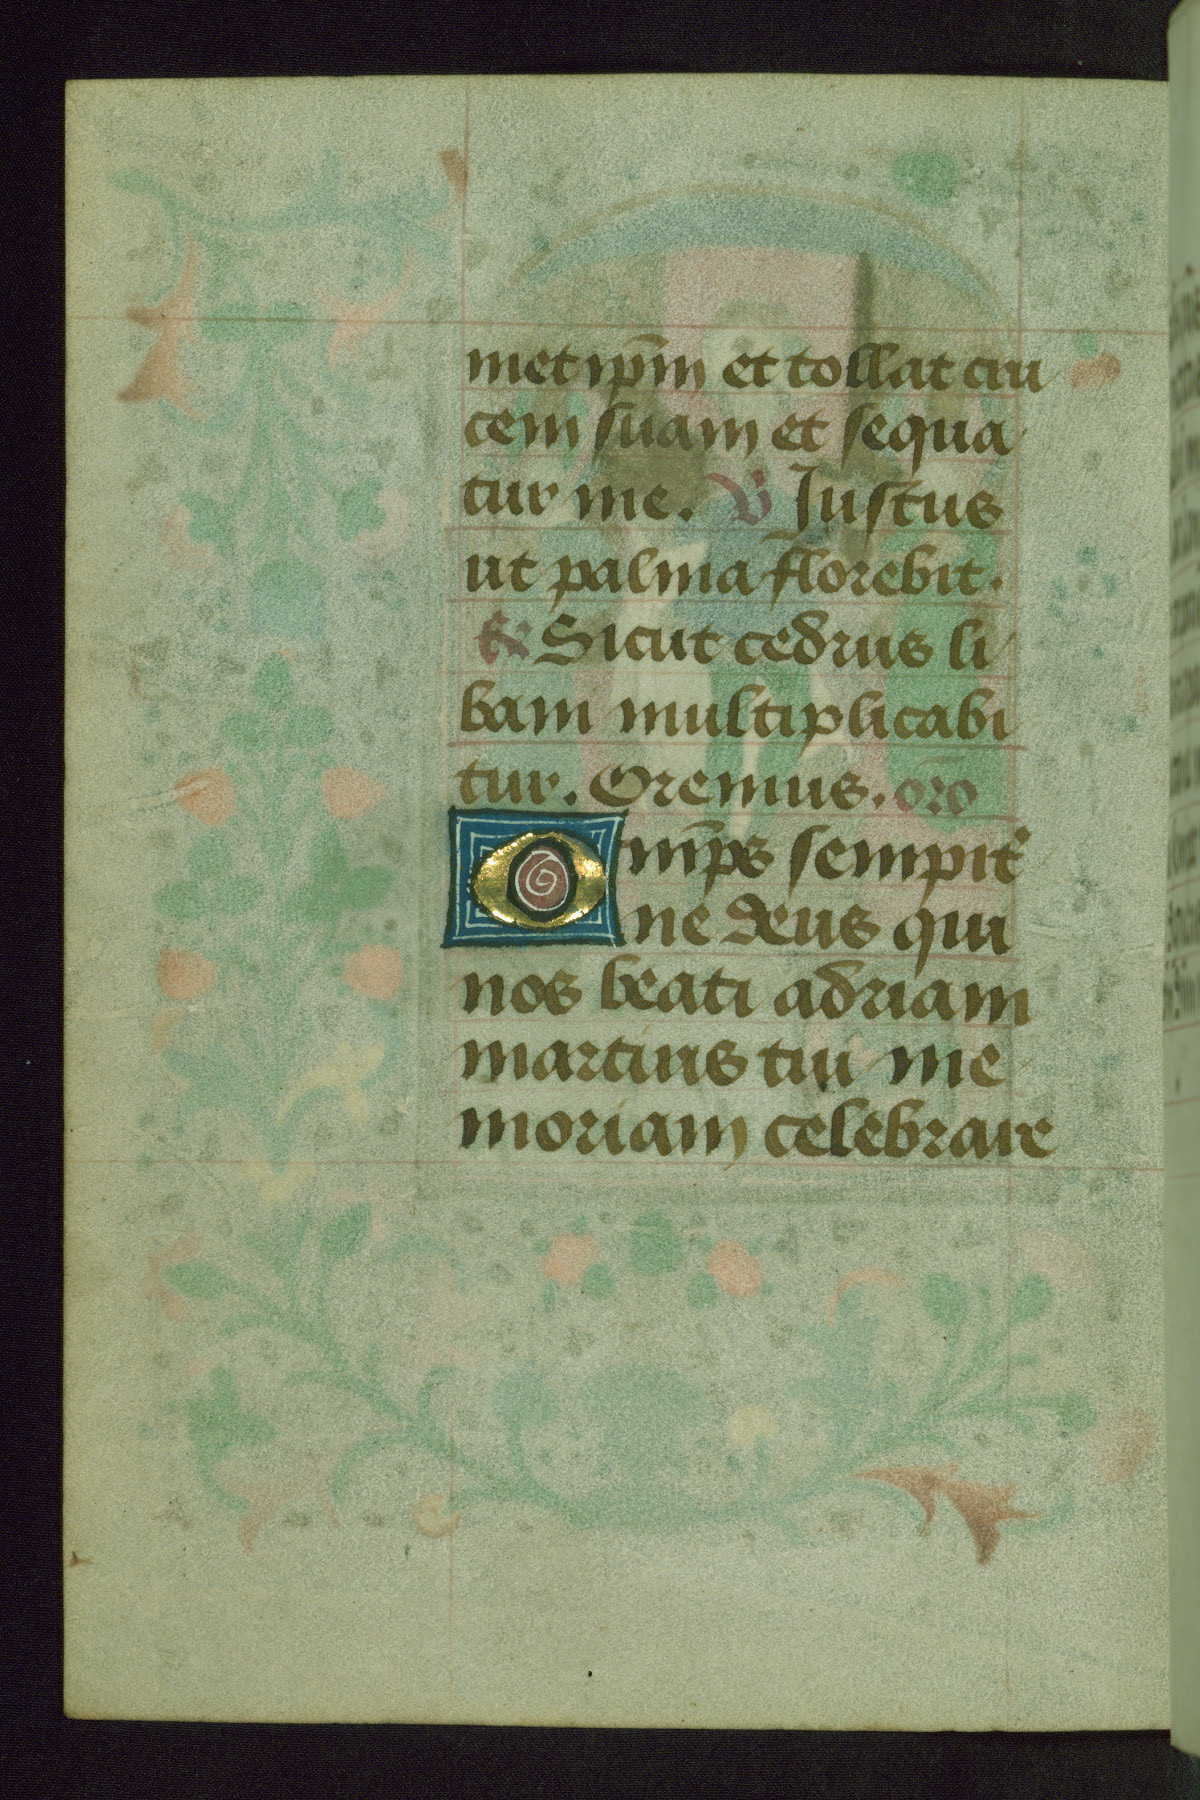 met ip̄m et tollat cru
cem suam et sequa
tur me. V Justus
ut palma florebit.
R Sicut cedrus li
bani multiplicabi
tur. Oremus. or̄o
Omn̄ps sempit̾
ne deus qui
nos beati adriani
martiris tui me
moriam celebrare